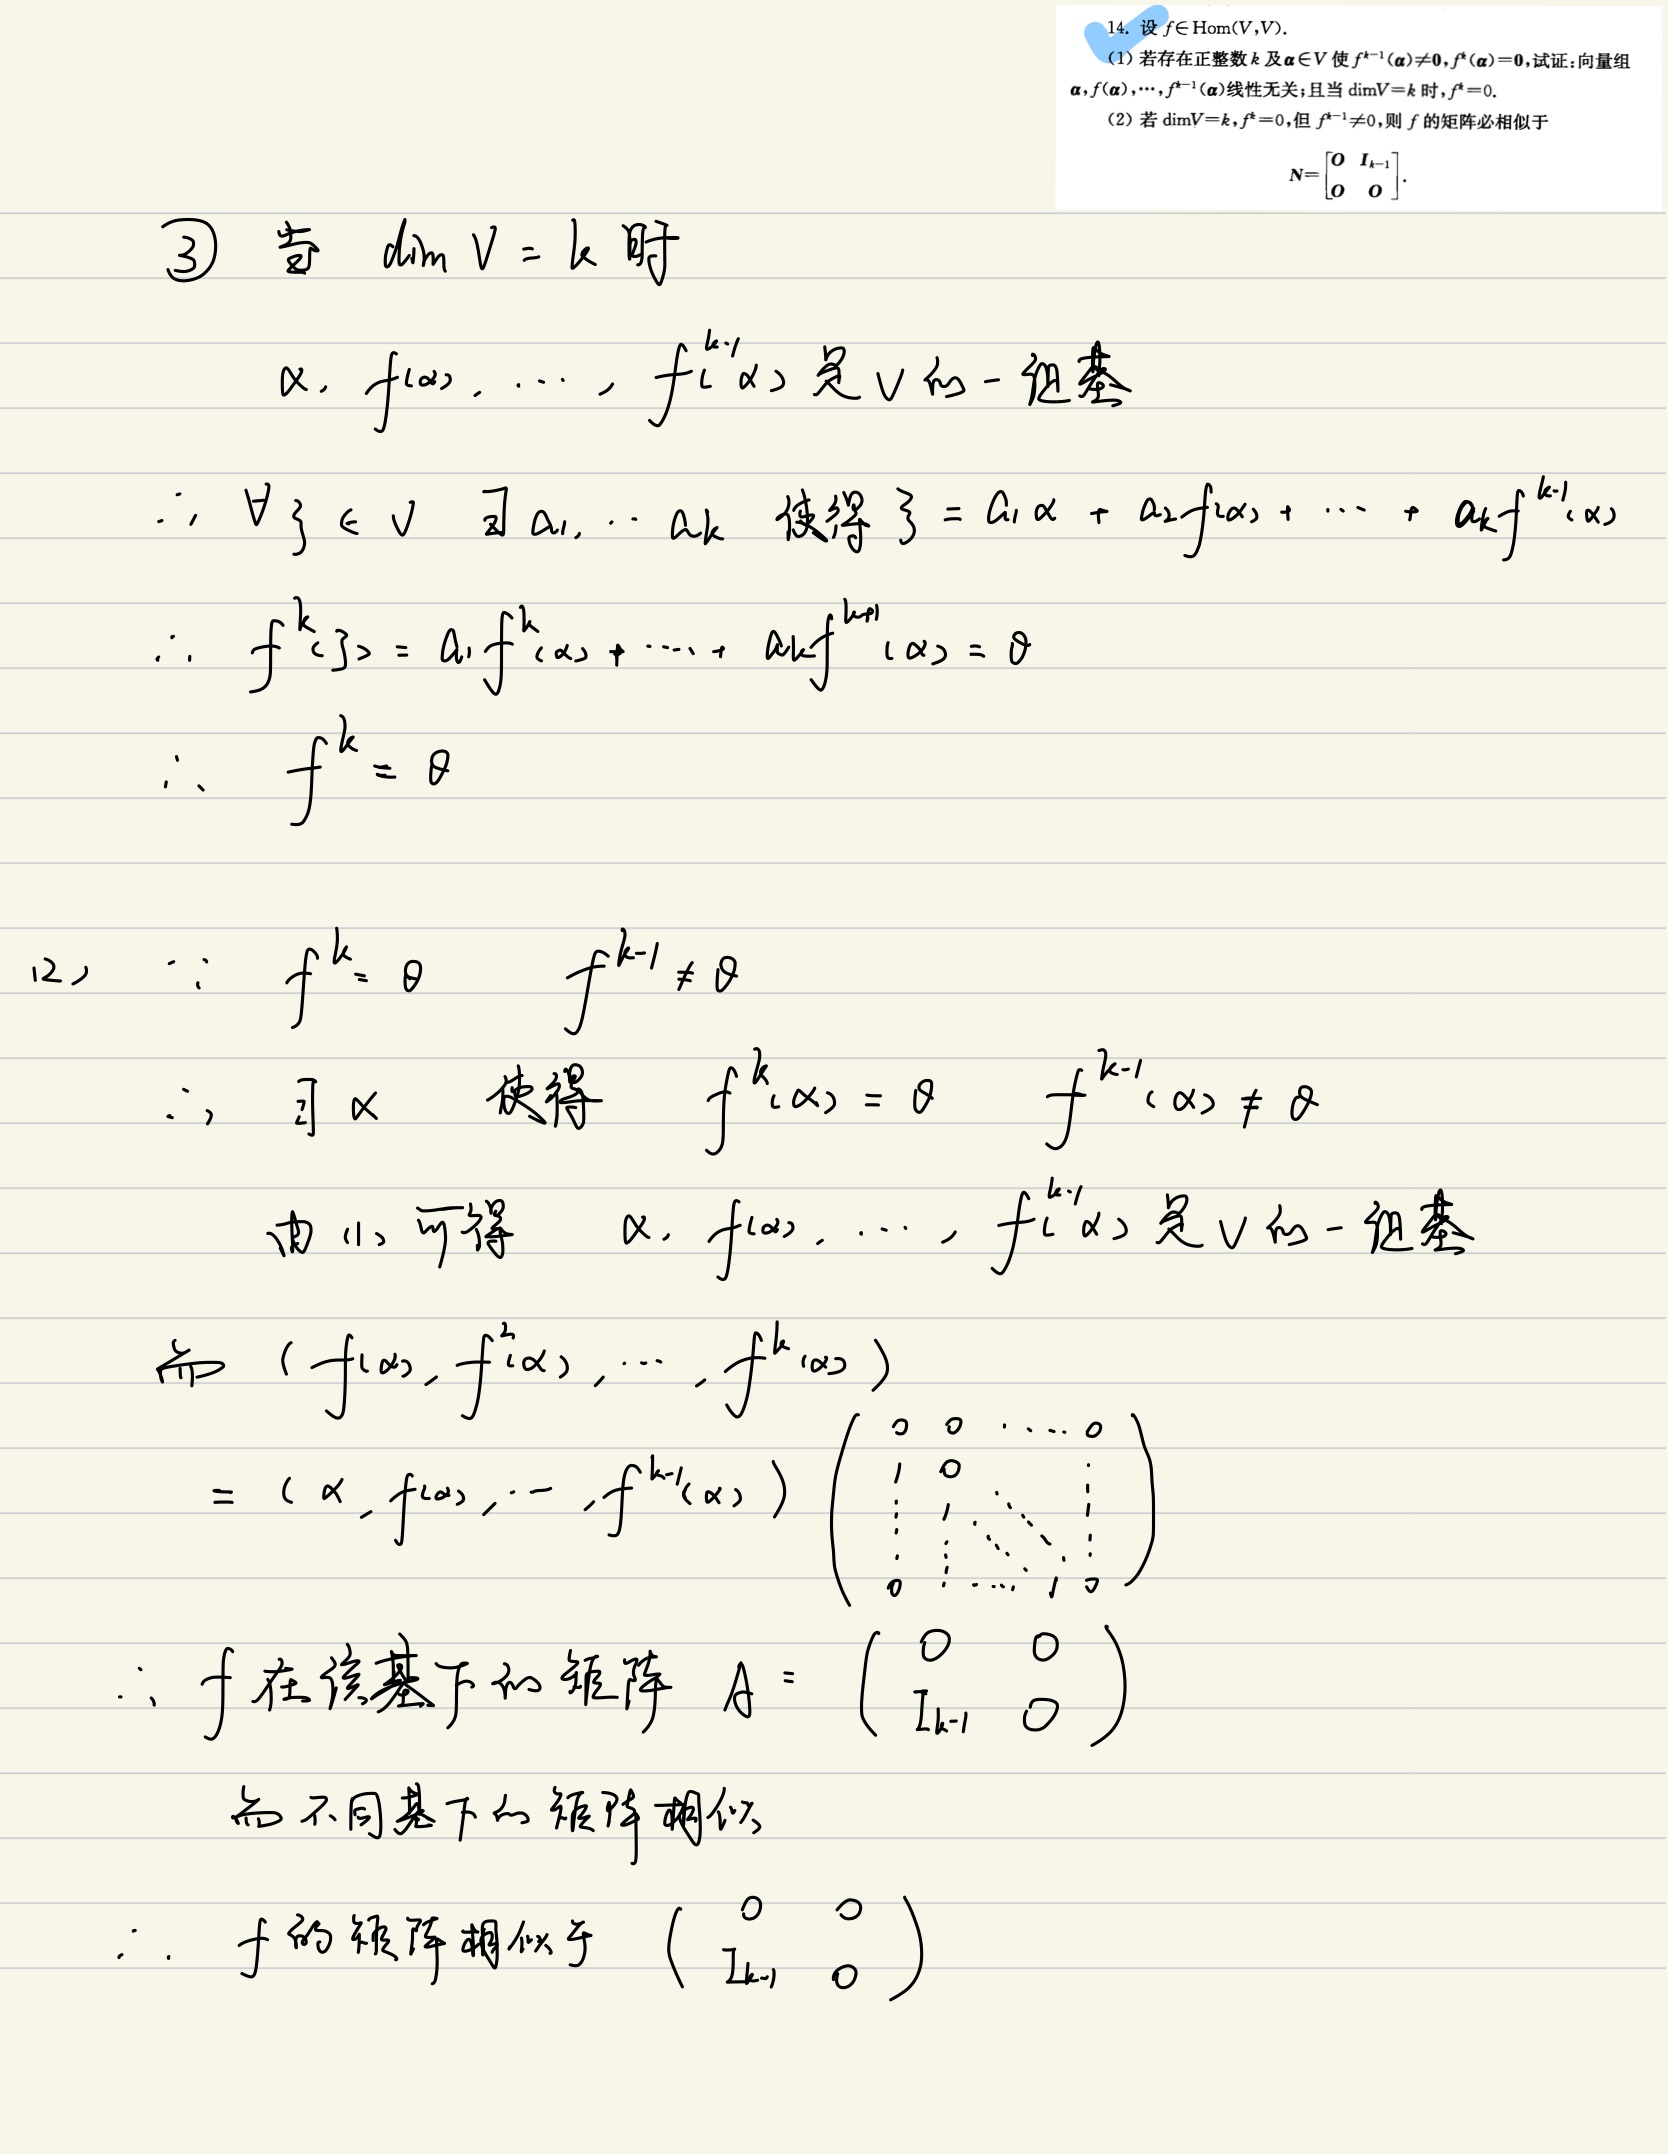 14. 设 f∈Hom(V,V).
(1) 若存在正整数 k 及 α∈V 使 f^{k-1}(α)≠0, f^k(α)=0, 试证: 向量组
α, f(α), ⋯, f^{k-1}(α) 线性无关; 且当 dimV=k 时, f^k=0.
(2) 若 dimV=k, f^k=0, 但 f^{k-1}≠0, 则 f 的矩阵必相似于
N=[O I_{k-1}; O O].
③ 当 dim V = k 时
α, f(α), ⋯, f^{k-1}(α) 是 V 的一组基
∴ ∀ξ∈V ∃ a₁, ⋯ a_k 使得 ξ = a₁α + a₂f(α) + ⋯ + a_k f^{k-1}(α)
∴ f^k(ξ) = a₁f^k(α) + ⋯ + a_k f (α) = θ
∴ f^k = θ
(2) ∵ f^k = θ f^{k-1} ≠ θ
∴ ∃ α 使得 f^k(α) = θ f^{k-1}(α) ≠ θ
由 (1) 可得 α, f(α), ⋯, f^{k-1}(α) 是 V 的一组基
而 (f(α), f²(α), ⋯, f^k(α))
= (α, f(α), ⋯, f^{k-1}(α)) (0 0 ⋯ 0; 1 0 ⋮; ⋮ 1 ⋱ ⋮; 0 ⋮ ⋯ 1 0)
∴ f 在该基下的矩阵 A = (0 0; I_{k-1} 0)
而不同基下的矩阵相似
∴ f 的矩阵相似于 (0 0; I_{k-1} 0)